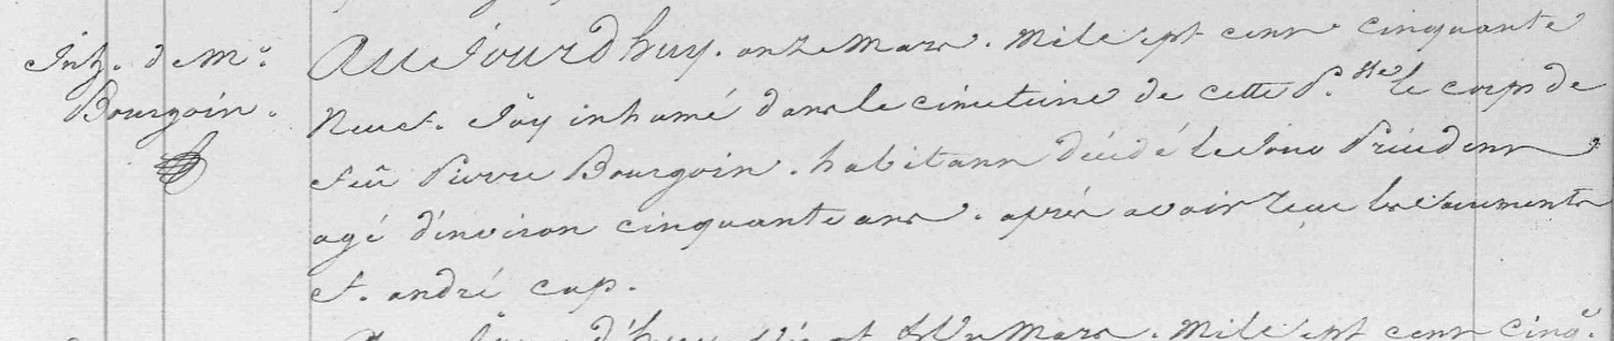 Inh. de Mr.
Bourgoin.
Aujourd'huy. onze Mars. Mil sept cens cinquante
Neuf. J'ay inhumé dans le cimetiere de cette P.sse le corps de
feû Pierre Bourgoin. habitans décédé le Jour Précédens
agé d'environ cinquante ans. après avoir reçue les sacrements
f. andré cap.
d'huy. Vingt Mars. Mil sept cens cinq.